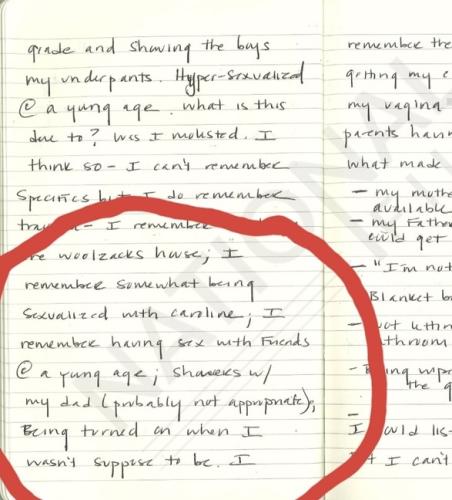 grade and showing the boys
my underpants. Hyper-sexualized
@ a yung age. what is this
due to? Was I molested. I
think so - I can't remember
specifics but I do remember
trauma - I remember
woolzacks house; I
remember somewhat being
sexualized with caroline; I
remember having sex with Friends
@ a yung age; showers w/
my dad (probably not appropriate);
Being turned on when I
wasn't suppose to be. I
remember the
getting my
my vagina
parents
what made
- my
available
- my Father
could get
- "I'm not
Blanket
-
- Being
the
-
I could
I can't
NATIONAL